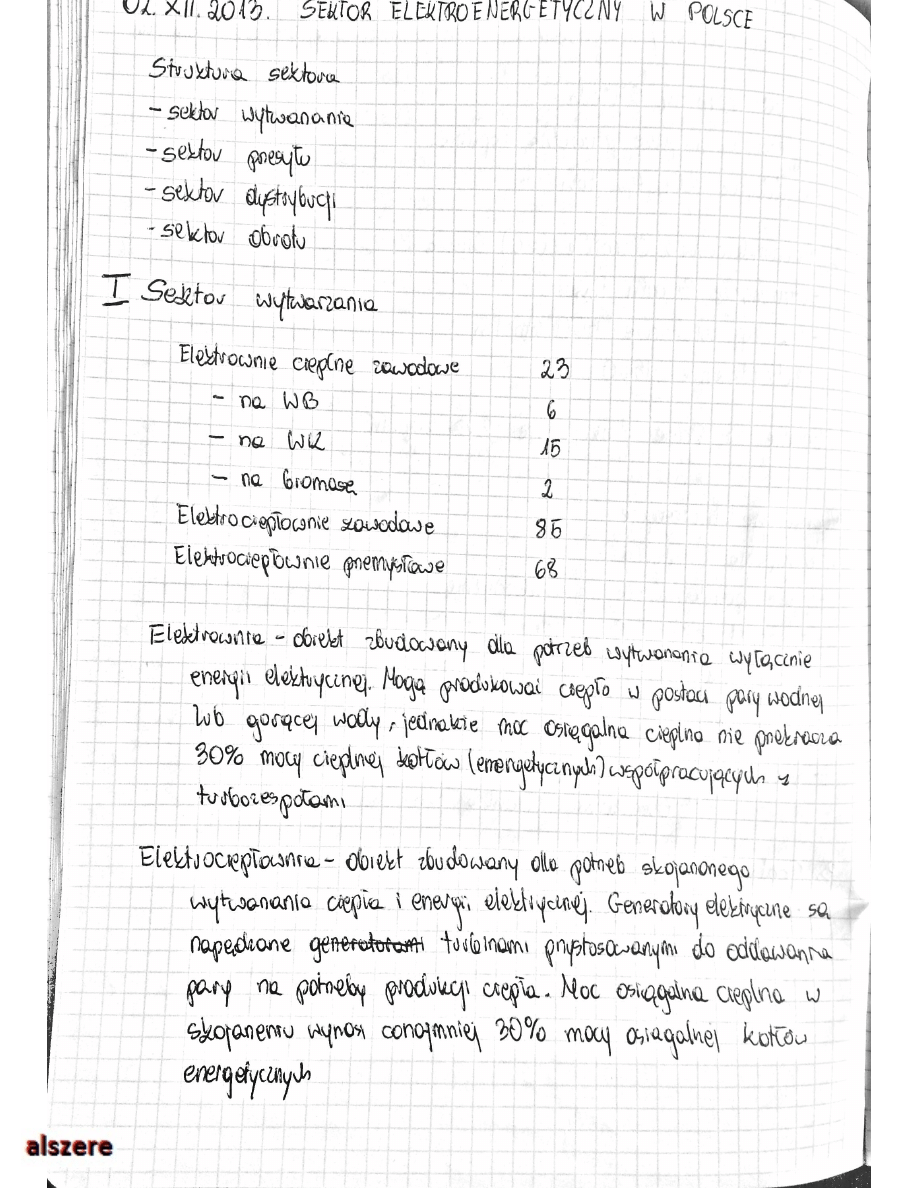 02.XII.2013. SEKTOR ELEKTROENERGETYCZNY W POLSCE
Struktura sektora
- sektor wytwarzania
- sektor przesyłu
- sektor dystrybucji
- sektor obrotu
I Sektor wytwarzania
Elektrownie cieplne zawodowe 23
- na WB 6
- na WK 15
- na biomasę 2
Elektrociepłownie zawodowe 85
Elektrociepłownie przemysłowe 68
Elektrownia - obiekt zbudowany dla potrzeb wytwarzania wyłącznie
energii elektrycznej. Mogą produkować ciepło w postaci pary wodnej
lub gorącej wody, jednakże moc osiągalna cieplna nie przekracza
30% mocy cieplnej kotłów (energetycznych) współpracujących z
turbozespołami
Elektrociepłownia - obiekt zbudowany dla potrzeb skojarzonego
wytwarzania ciepła i energii elektrycznej. Generatory elektryczne są
napędzane generatorami turbinami przystosowanymi do oddawania
pary na potrzeby produkcji ciepła. Moc osiągalna cieplna w
skojarzeniu wynosi conajmniej 30% mocy osiągalnej kotłów
energetycznych
alszere